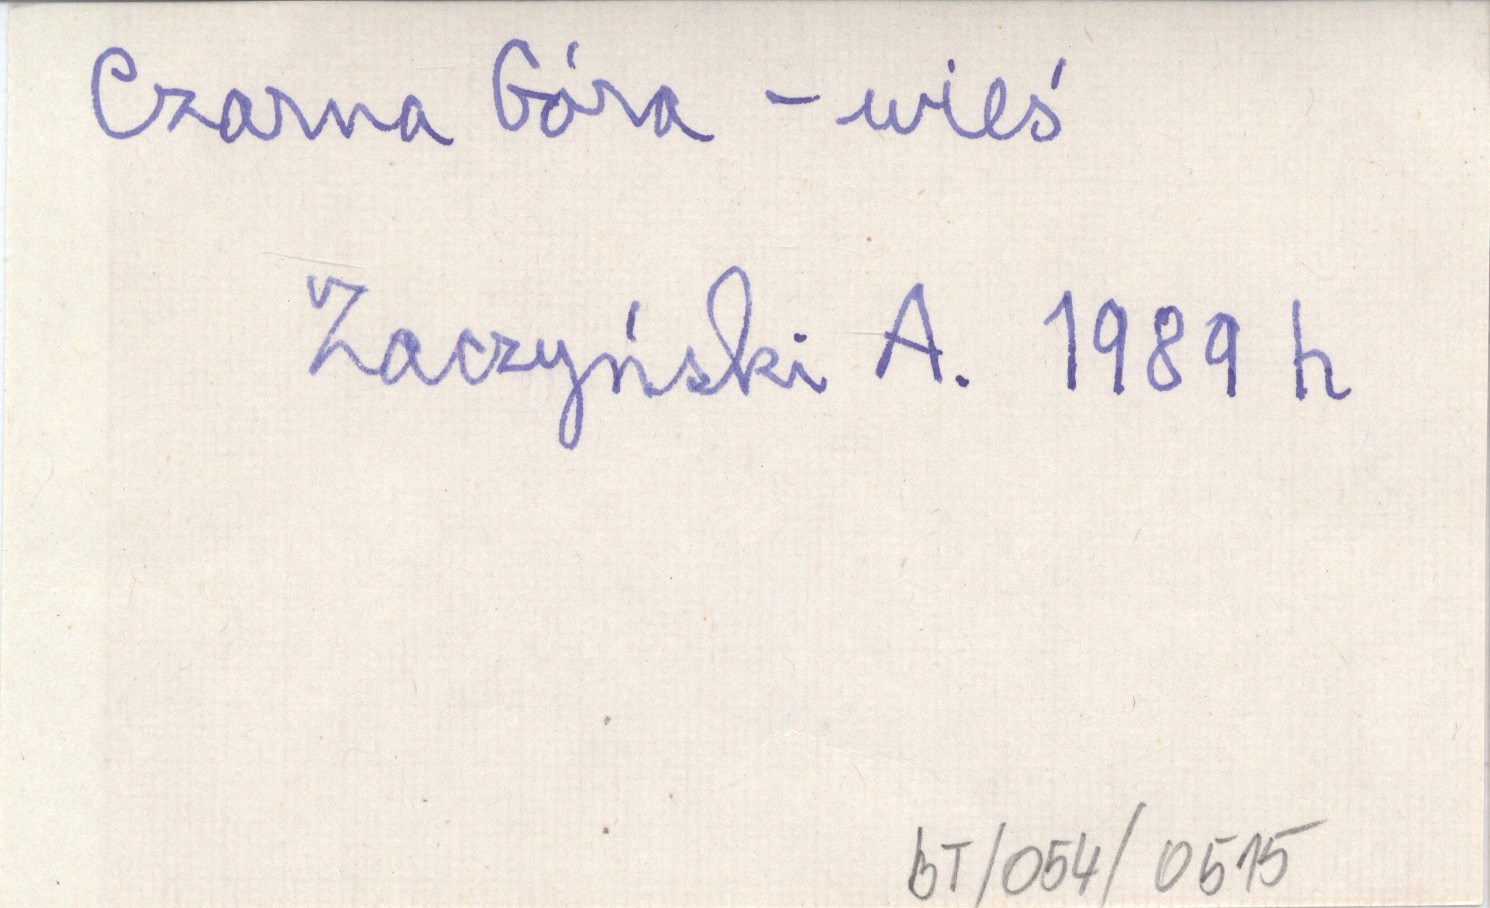 Czarna Góra - wieś
Zaczyński A. 1989 h
bT/054/0515